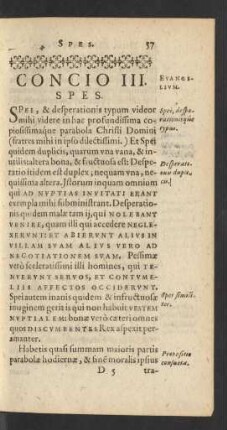 SPES. 37
CONCIO III.
SPES.
SPEI, & desperationis typum videor
mihi videre in hac profundissima co-
piosissimaque parabola Christi Domini
(fratres mihi in ipso dilectissimi.) Et Spei
quidem duplicis, quarum vna vana, & in-
utilis: altera bona, & fructuosa est: Despe-
ratio itidem est duplex, nequam vna, ne-
quissima altera. Istorum inquam omnium
qui AD NVPTIAS INVITATI ERANT
exempla mihi subministrant. Desperatio-
nis quidem malæ tam ij, qui NOLEBANT
VENIRE, quam illi qui accedere NEGLE-
XERVNT: ET ABIERVNT ALIVS IN
VILLAM SVAM ALIVS VERO AD
NEGOTIATIONEM SVAM. Pessimæ
vetò sceleratissimi illi homines, qui TE-
NVERVNT SERVOS, ET CONTVME-
LIIS AFFECTOS OCCIDERVNT.
Spei autem inanis quidem & infructuosæ
imaginem gerit is qui non habuit VESTEM
NVPTIALEM: bonæ vetò cæteri omnes
quos DISCVMBENTES Rex aspexit per-
amanter.
Habetis quasi summam maioris partis
parabolæ hodiernæ, & sinè moralis ipsius
D 5 tra-
EVANGE-
LIVM.
Spei, despe-
rationisque
typus.
Desperatio
duplex.
Propositio